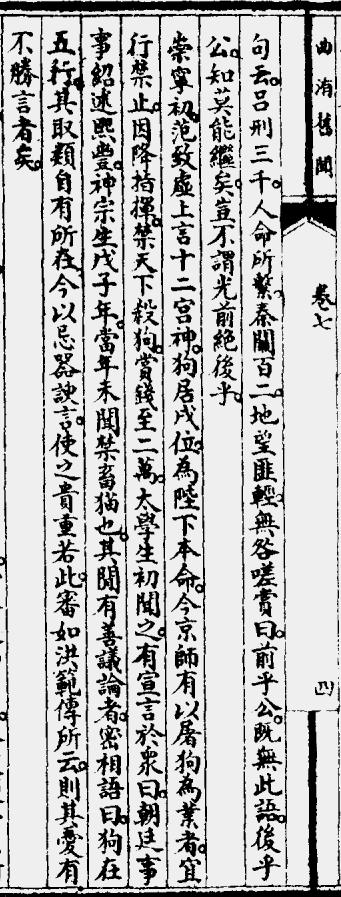 曲洧舊聞
卷七
四
句云呂刑三千人命所繫秦關百二地望匪輕無咎嗟賞曰前乎公既無此語後乎
公知莫能繼矣豈不謂光前絕後乎
崇寧初范致虛上言十二宮神狗居戌位為陛下本命今京師有以屠狗為業者宜
行禁止因降指揮禁天下殺狗賞錢至二萬太學生初聞之有宣言於眾曰朝廷事
事紹述熙豐神宗生戊子年當年未聞禁畜猫也其間有善議論者密相語曰狗在
五行其取類自有所在今以忌器諛言使之貴重若此審如洪範傳所云則其憂有
不勝言者矣